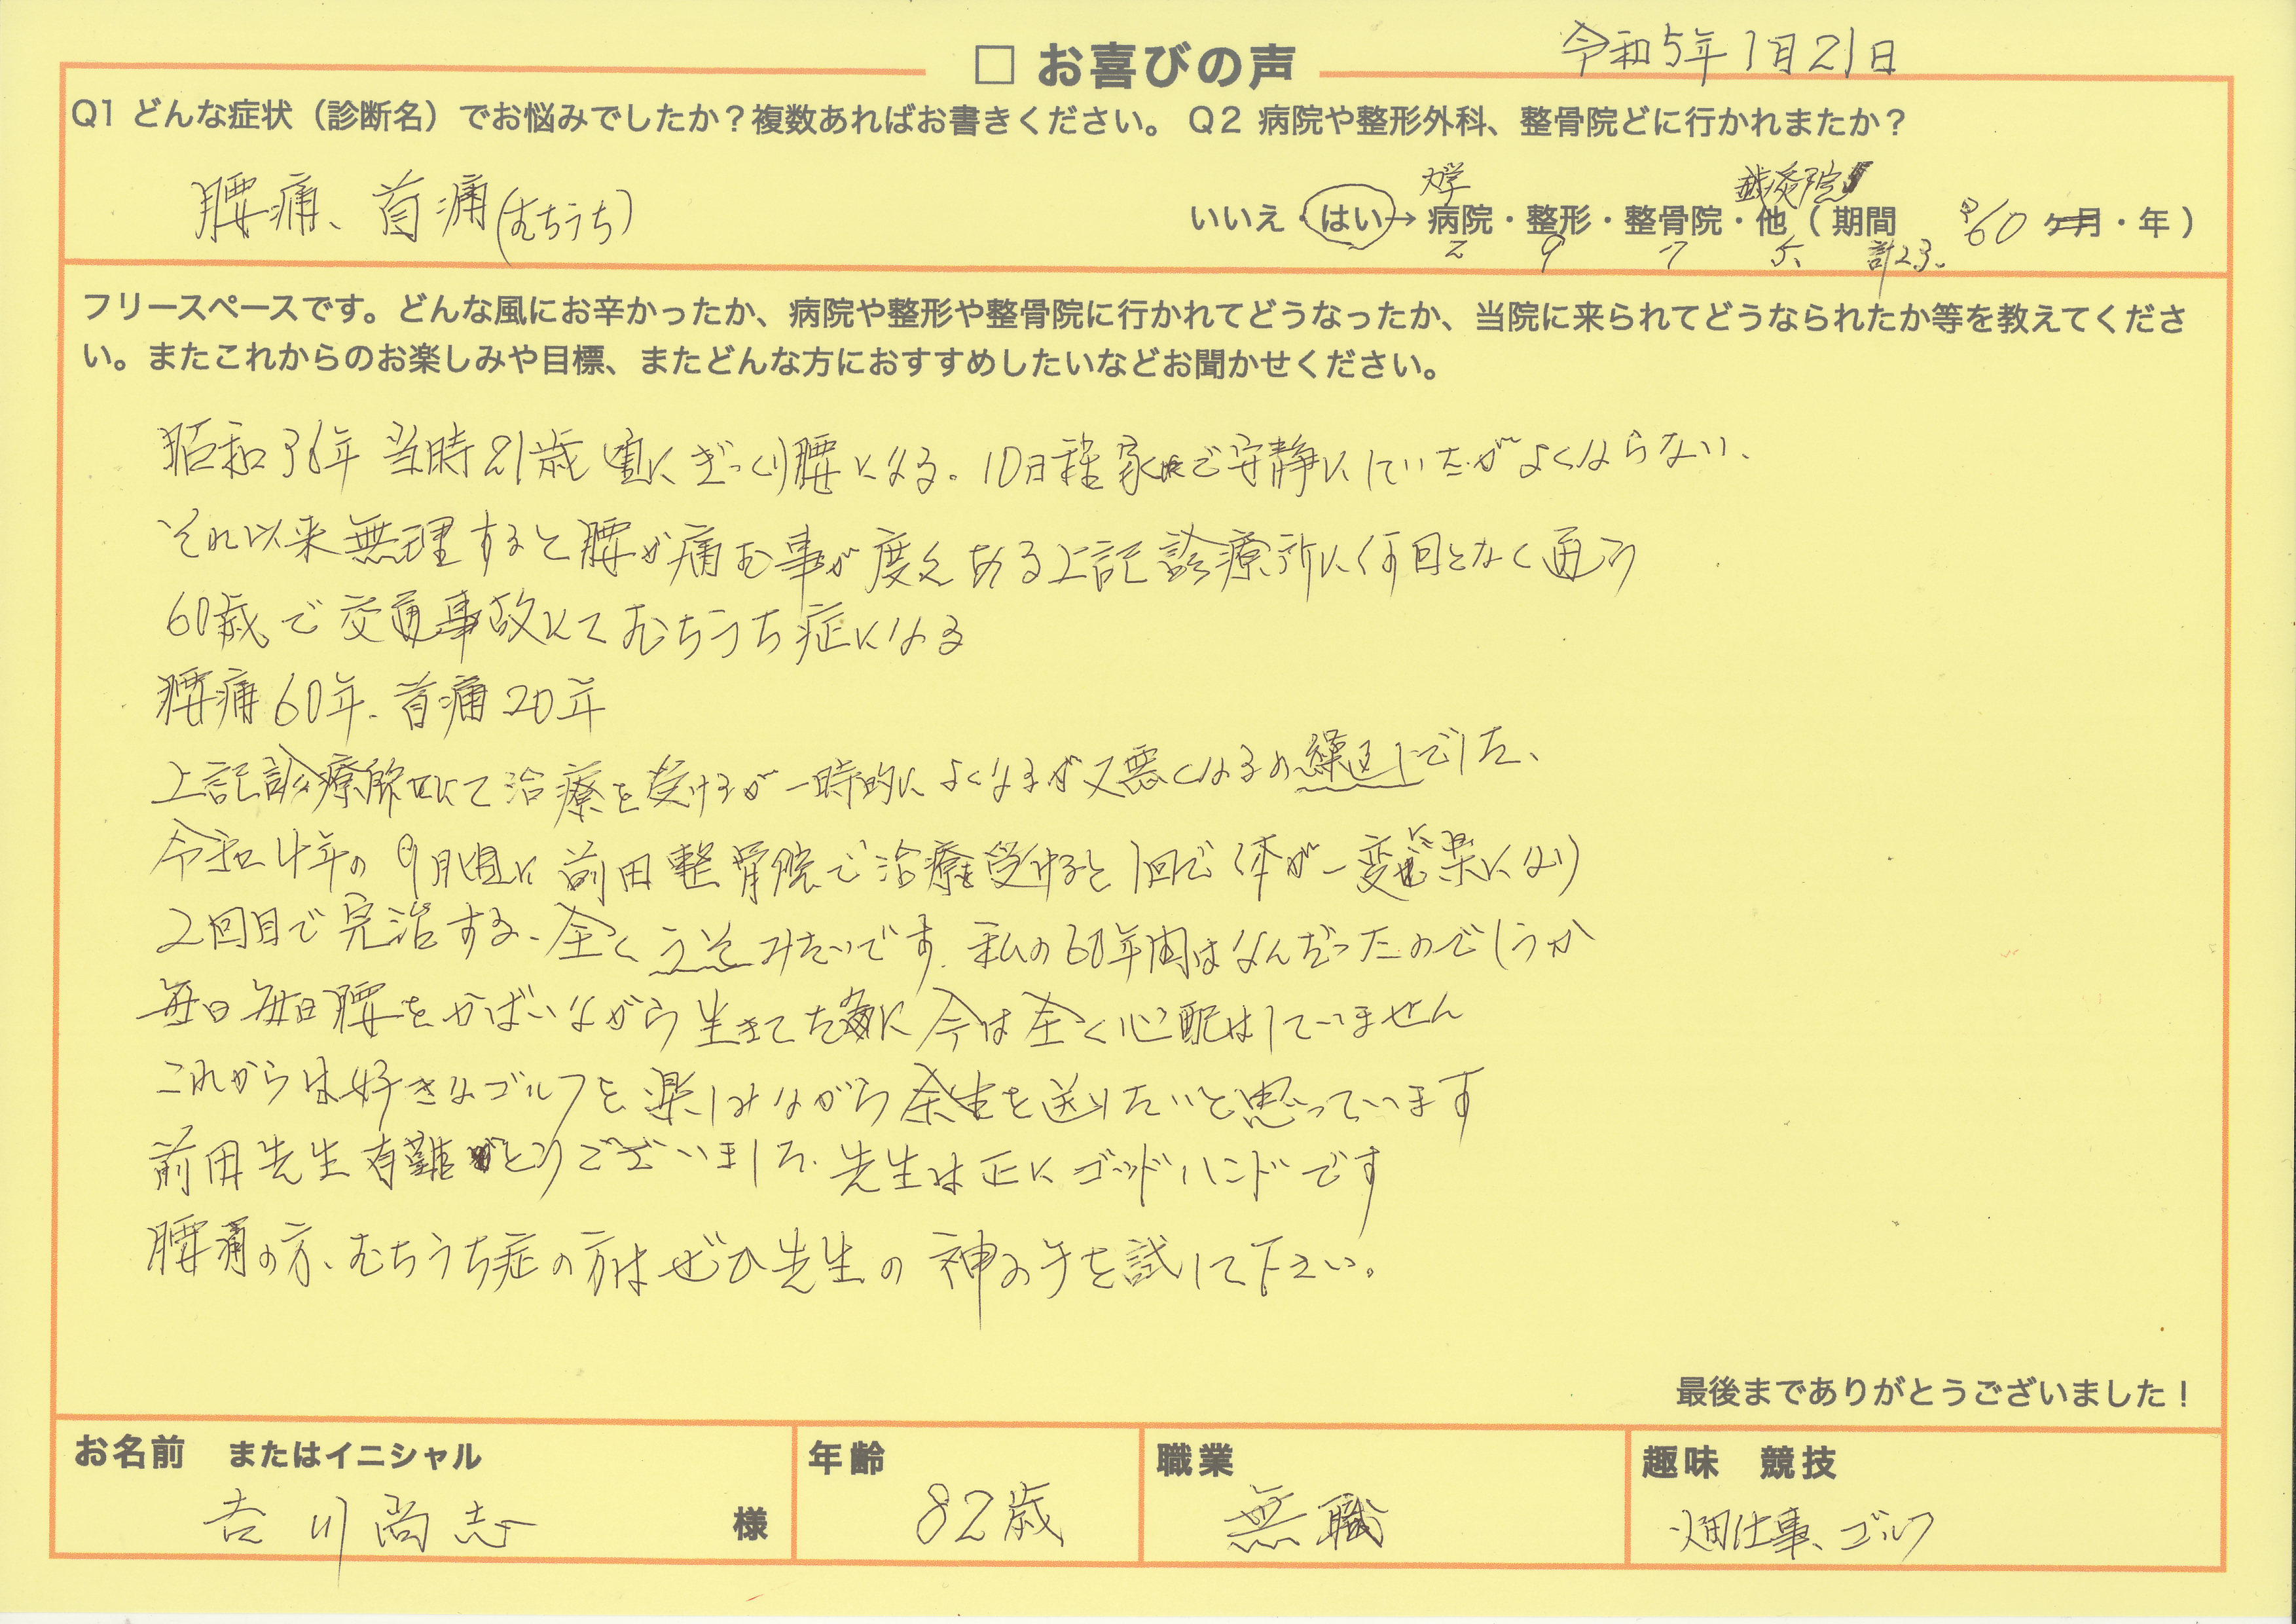 □ お喜びの声
令和5年1月21日
Q1 どんな症状（診断名）でお悩みでしたか？複数あればお書きください。 Q2 病院や整形外科、整骨院どに行かれまたか？
腰痛、首痛(むちうち)
大学 鍼灸院
いいえ・はい→ 病院・整形・整骨院・他（期間 約60 ヶ月・年）
2 9 7 5 計23
フリースペースです。どんな風にお辛かったか、病院や整形や整骨院に行かれてどうなったか、当院に来られてどうなられたか等を教えてくださ
い。またこれからのお楽しみや目標、またどんな方におすすめしたいなどお聞かせください。
昭和36年当時21歳頃にぎっくり腰になる。10日程家で安静にしていたがよくならない、
それ以来無理すると腰が痛む事が度々ある上記診療所に何回となく通う
60歳で交通事故にてむちうち症になる
腰痛60年、首痛20年
上記診療所にて治療を受けるが一時的によくなるが又悪くなるの繰返しでした、
令和4年の9月頃に前田整骨院で治療を受けると1回で体が一変に楽になり
2回目で完治する、全くうそみたいです。私の60年間はなんだったのでしょうか
毎日毎日腰をかばいながら生きてた為に今は全く心配はしていません
これからは好きなゴルフを楽しみながら余生を送りたいと思っています
前田先生有難とうございました、先生は正にゴッドハンドです
腰痛の方、むちうち症の方はぜひ先生の神の手を試して下さい。
最後までありがとうございました！
お名前 またはイニシャル
吉川尚志 様
年齢
82歳
職業
無職
趣味 競技
畑仕事、ゴルフ